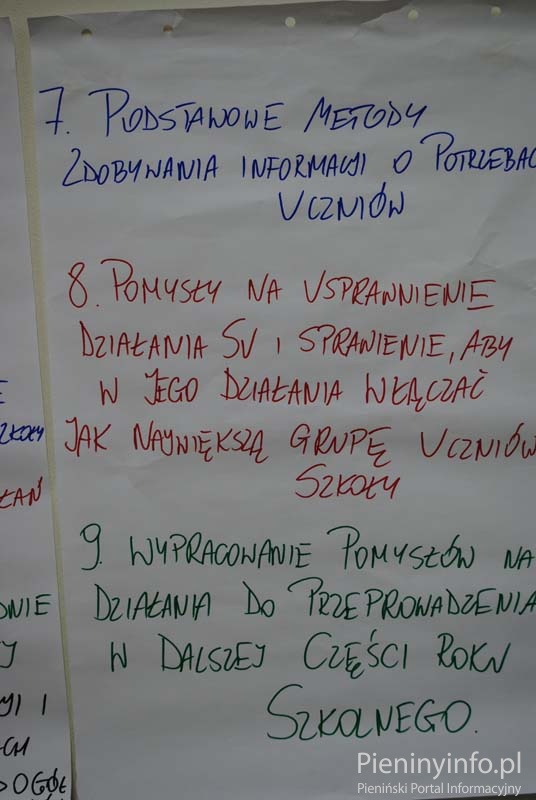 7. PODSTAWOWE METODY
ZDOBYWANIA INFORMACJI O POTRZEBAC
UCZNIÓW
8. POMYSŁY NA USPRAWNIENIE
DZIAŁANIA SU I SPRAWIENIE, ABY
W JEGO DZIAŁANIA WŁĄCZAĆ
JAK NAJWIĘKSZĄ GRUPĘ UCZNIÓW
SZKOŁY
9. WYPRACOWANIE POMYSŁÓW NA
DZIAŁANIA DO PRZEPROWADZENIA
W DALSZEJ CZĘŚCI ROKU
SZKOLNEGO.
E
ZKOŁY
ŁAŃ
DNIE
Y
YI I
CH
OGÓŁ
Pieninyinfo.pl
Pieniński Portal Informacyjny